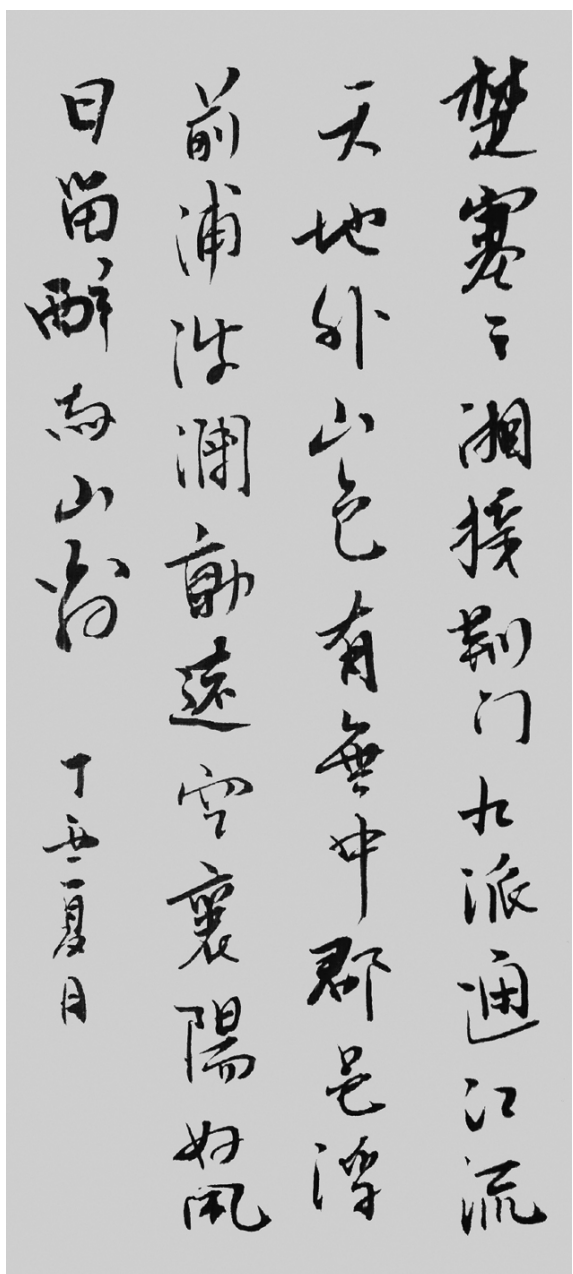 楚塞三湘接荆门九派通江流
天地外山色有無中郡邑浮
前浦波瀾動遠空襄陽好風
日留醉与山翁 丁酉夏月